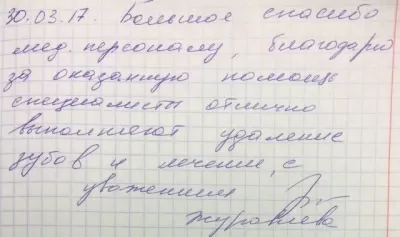 30.03.17. Большое спасибо
мед. персоналу, благодарю
за оказанную помощь
специалисты отлично
выполняют удаление
зубов и лечение, с
уважением
Журавлева